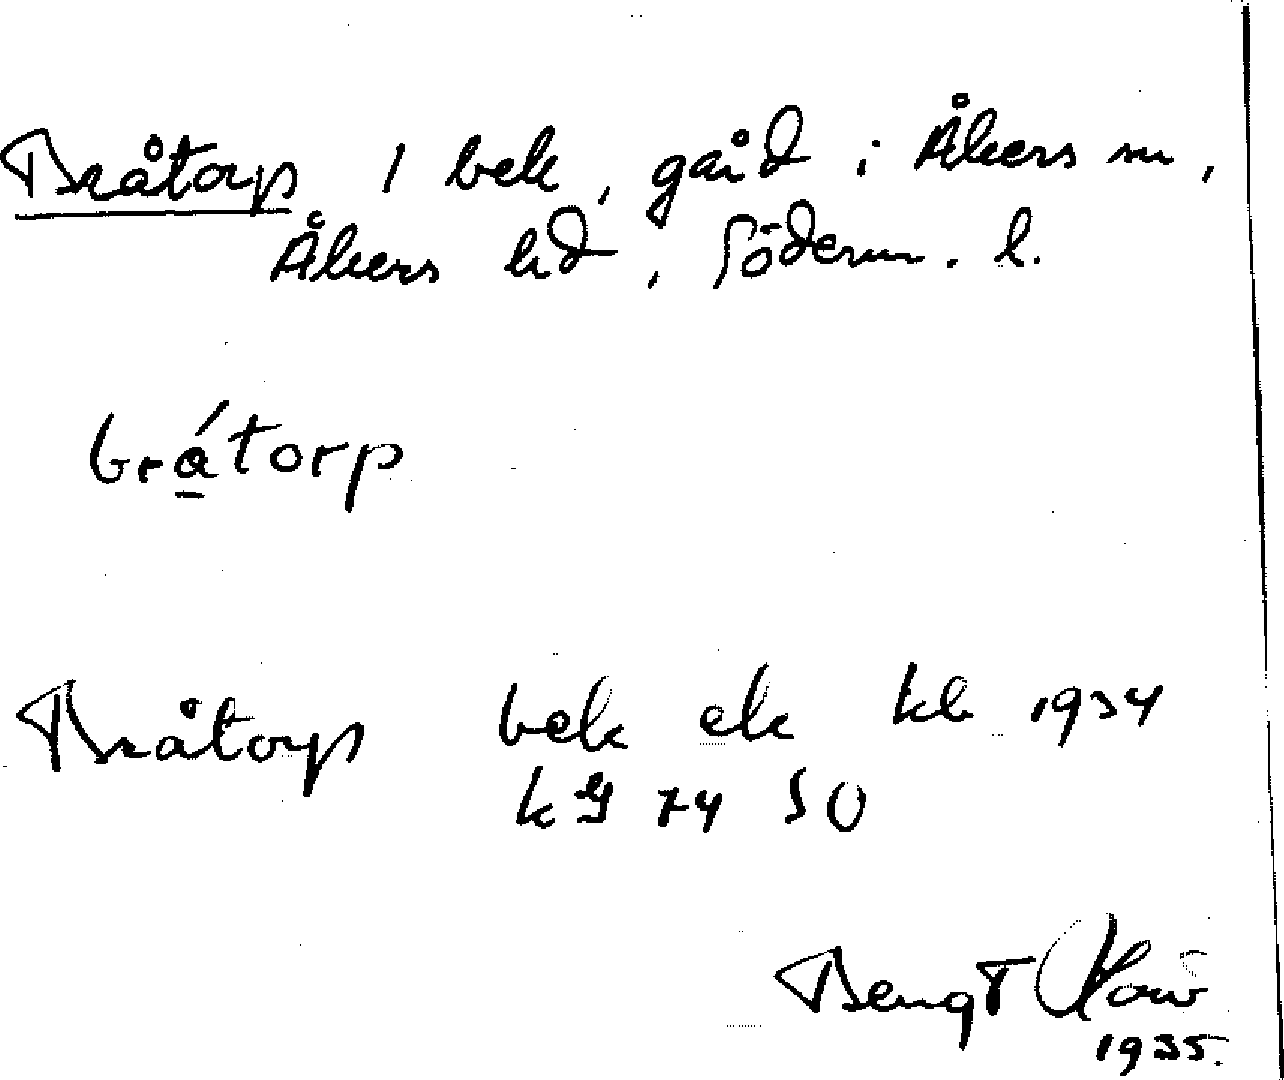 Bråtorp 1 bek, gård i Åkers sn,
Åkers hd, Söderm. l.
bråtorp
Bråtorp bek ek kb 1934
kg 74 SO
Bengt
1935.